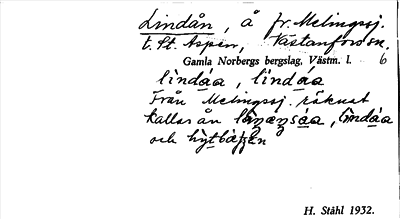 Lindån, å fr. Melingssj.
t. St. Aspen, Västanfors sn.
Gamla Norbergs bergslag, Västm. l. 6
li̊ndå̀a, lindåa
Från Melingssj. räknat
kallas ån, lindåa
och
H. Ståhl 1932.